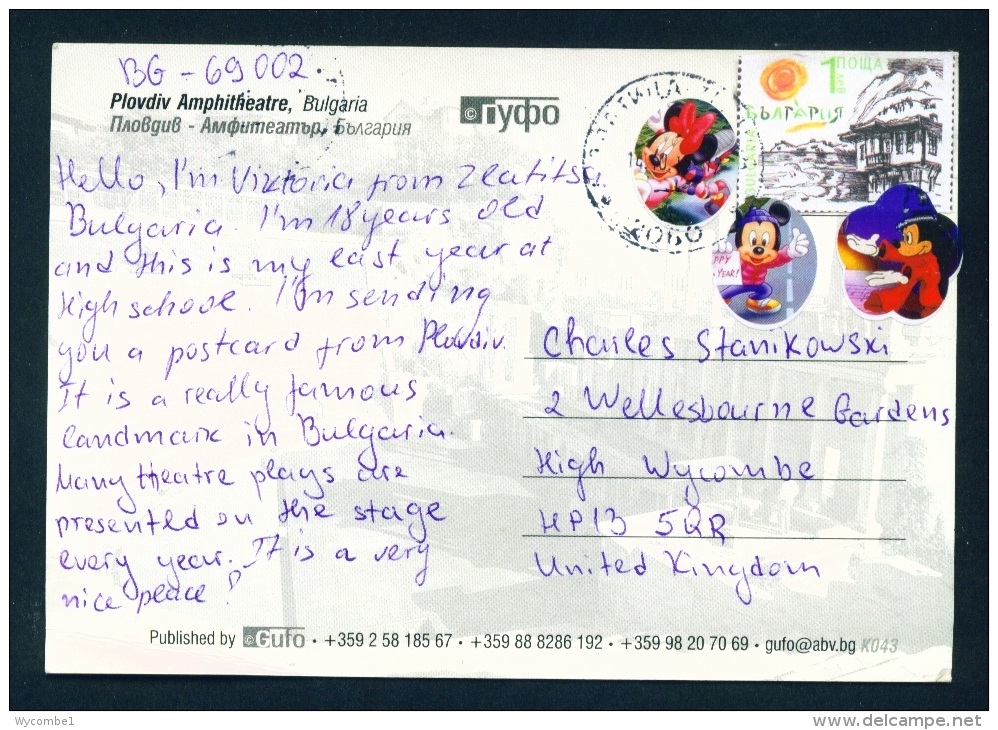 BG - 69002
Plovdiv Amphitheatre, Bulgaria
Пловдив - Амфитеатър, България
© Гуфо
1 ПОЩА
БЪЛГАРИЯ
BULGARIA
2080
PPY
YEAR!
Hello, I'm Viktoria from Zlatitsa
Bulgaria. I'm 18 years old
and this is my last year at
High school. I'm sending
you a postcard from Plovdiv.
It is a really famous
landmark in Bulgaria.
Many theatre plays are
presented on the stage
every year. It is a very
nice place!
Charles Stanikowski
2 Wellesbourne Gardens
High Wycombe
HP13 5QR
United Kingdom
Published by © Gufo • +359 2 58 185 67 • +359 88 8286 192 • +359 98 20 70 69 • gufo@abv.bg K043
Wycombe1
delcampe.net